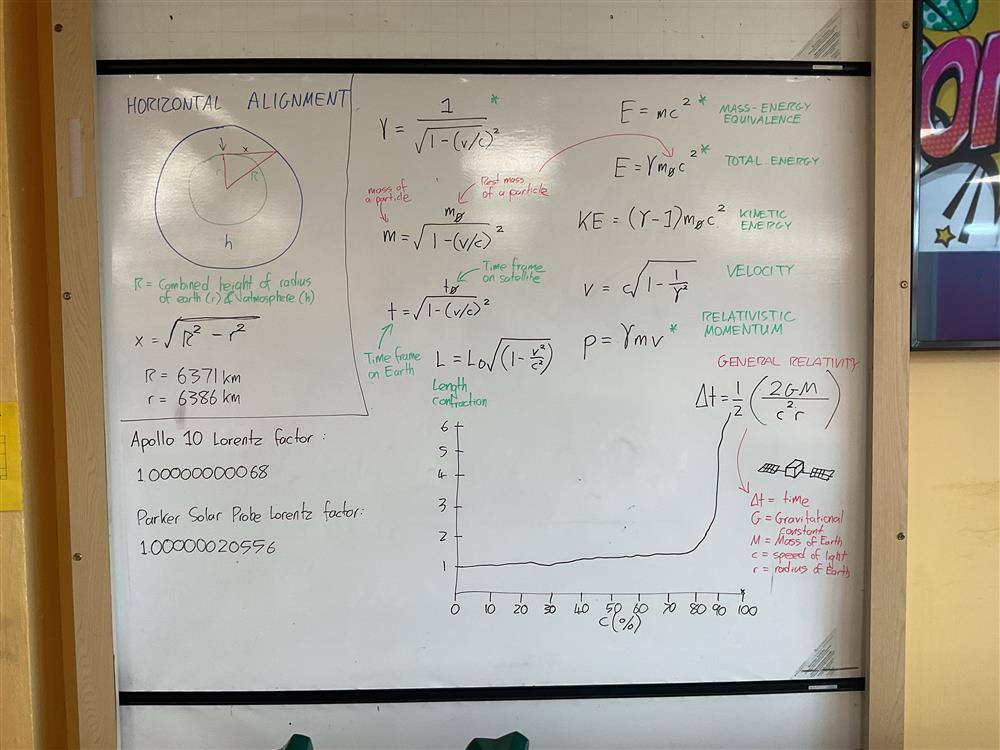 HORIZONTAL ALIGNMENT
x
r
R
h
R = Combined height of radius
of earth (r) & atmosphere (h)
x = √R² - r²
R = 6371 km
r = 6386 km
Apollo 10 Lorentz factor :
1.00000000068
Parker Solar Probe Lorentz factor:
1.00000020556
γ = 1 / √1-(v/c)² *
mass of
a particle
Rest mass
of a particle
m = m0 / √1-(v/c)²
Time frame
on satellite
t = t0 / √1-(v/c)²
Time frame
on Earth
L = L0√(1 - v²/c²)
Length
contraction
E = mc² *
MASS-ENERGY
EQUIVALENCE
E = γm0c² *
TOTAL ENERGY
KE = (γ-1)m0c²
KINETIC
ENERGY
v = c√1 - 1/γ²
VELOCITY
p = γmv *
RELATIVISTIC
MOMENTUM
GENERAL RELATIVITY
Δt = 1/2 (2GM / c²r)
Δt = time
G = Gravitational
constant
M = Mass of Earth
c = speed of light
r = radius of Earth
6
5
4
3
2
1
0 10 20 30 40 50 60 70 80 90 100
C (%)